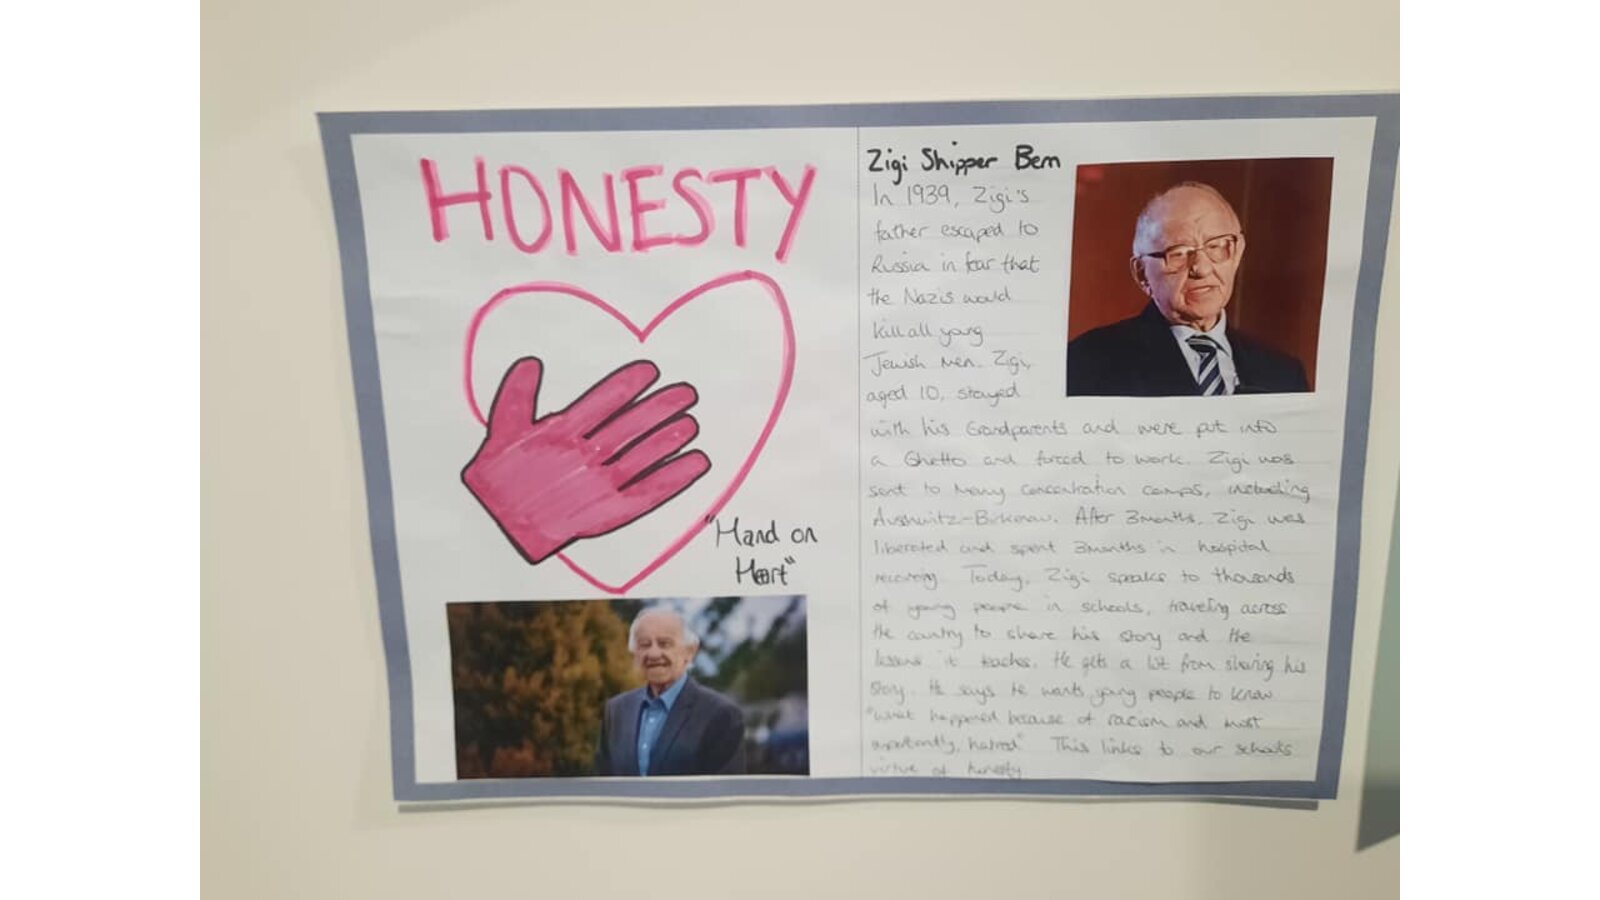 HONESTY
"Hand on
Heart"
Zigi Shipper Bem
In 1939, Zigi's
father escaped to
Russia in fear that
the Nazis would
kill all young
Jewish men. Zigi,
aged 10, stayed
with his Grandparents and were put into
a Ghetto and forced to work. Zigi was
sent to many concentration camps, including
Aushwitz-Birkenau. After 3months, Zigi was
liberated and spent 3months in hospital
recovering. Today, Zigi speaks to thousands
of young people in schools, traveling across
the country to share his story and the
lessons it teaches. He gets a lot from sharing his
story. He says he wants young people to know
"what happened because of racism and most
importantly, hatred" This links to our schools
virtue of honesty.